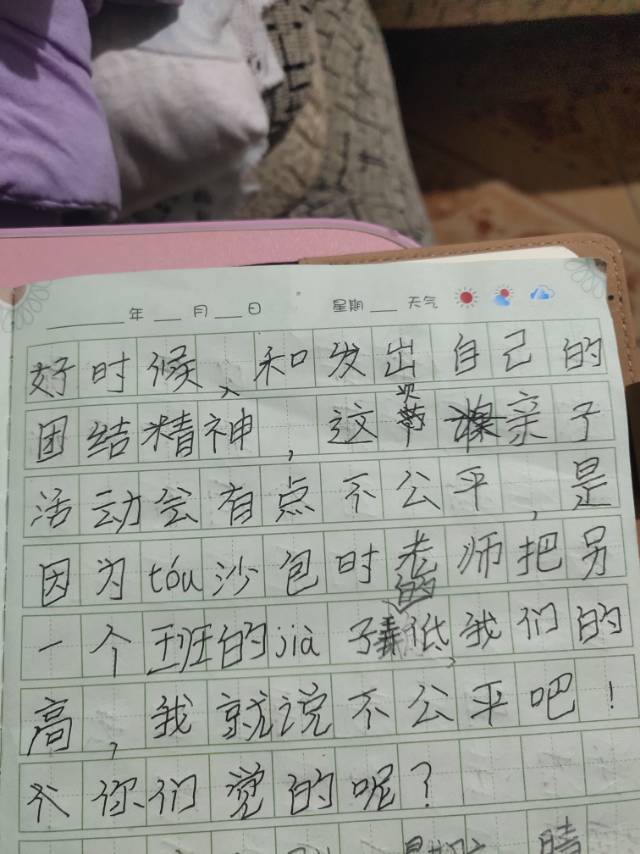 年 月 日 星期 天气
好时候、和发出自己的
团结精神，这次亲子
活动会有点不公平，是
因为tóu沙包时老师把另
一个班的jià子低我们的
高，我就说不公平吧！
你们觉的呢？